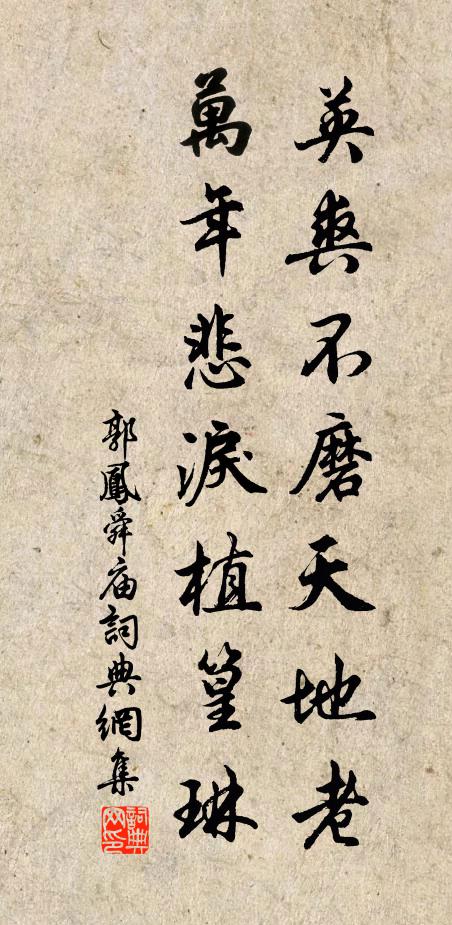 英爽不磨天地老
萬年悲淚植篁琳
郭鳳舜庙詞典網集
詞典網印